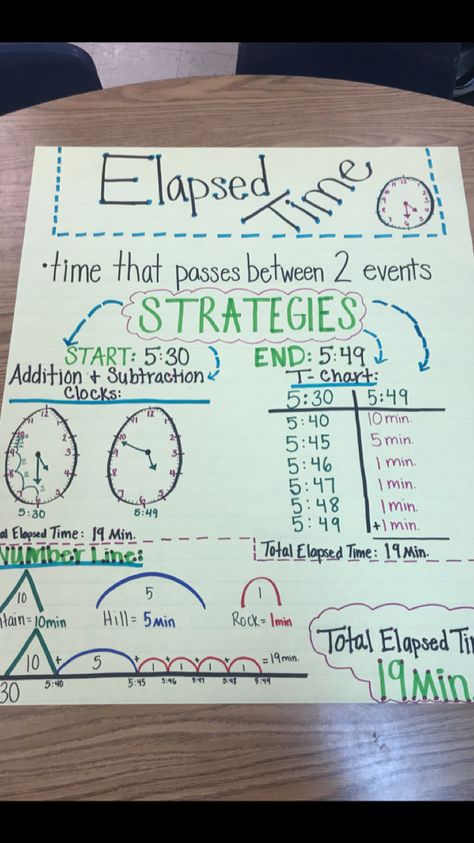 Elapsed Time
•time that passes between 2 events
STRATEGIES
START: 5:30
END: 5:49
Addition + Subtraction
Clocks:
5:30
5:49
al Elapsed Time: 19 Min.
T-Chart:
5:30 5:49
5:40 10 min.
5:45 5 min.
5:46 1 min.
5:47 1 min.
5:48 1 min.
5:49 +1 min.
Total Elapsed Time: 19 Min.
Number Line:
10
5
1
tain=10min
Hill= 5Min
Rock= 1min
10 + 5 + 1 + 1 + 1 + 1 =19min.
30 5:40 5:45 5:46 5:47 5:48 5:49
Total Elapsed Ti
19Min